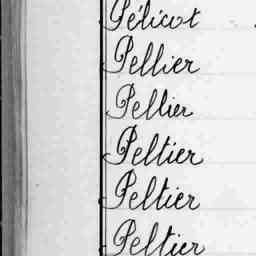 Pélicot
Pellier
Pellier
Peltier
Peltier
Peltier